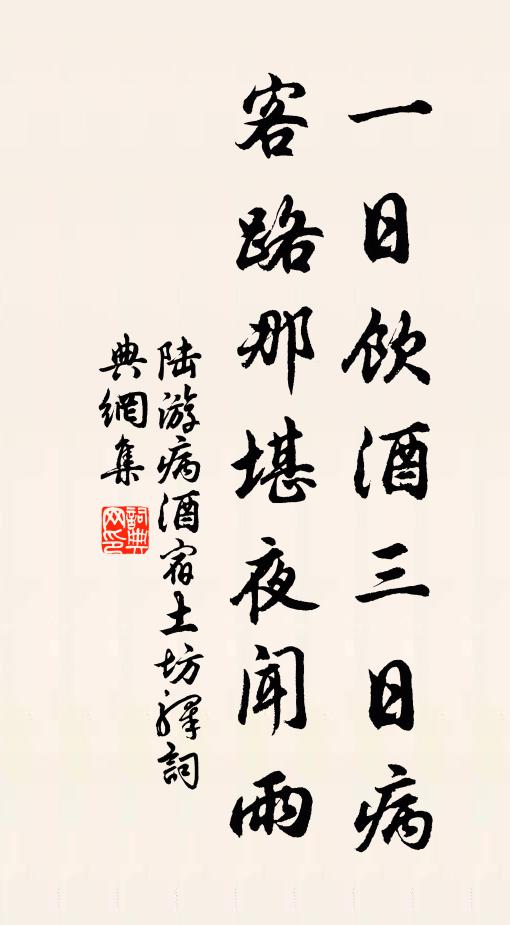 一日飲酒三日病
客路那堪夜聞雨
陆游病酒宿土坊驛詞
典網集
詞典网印